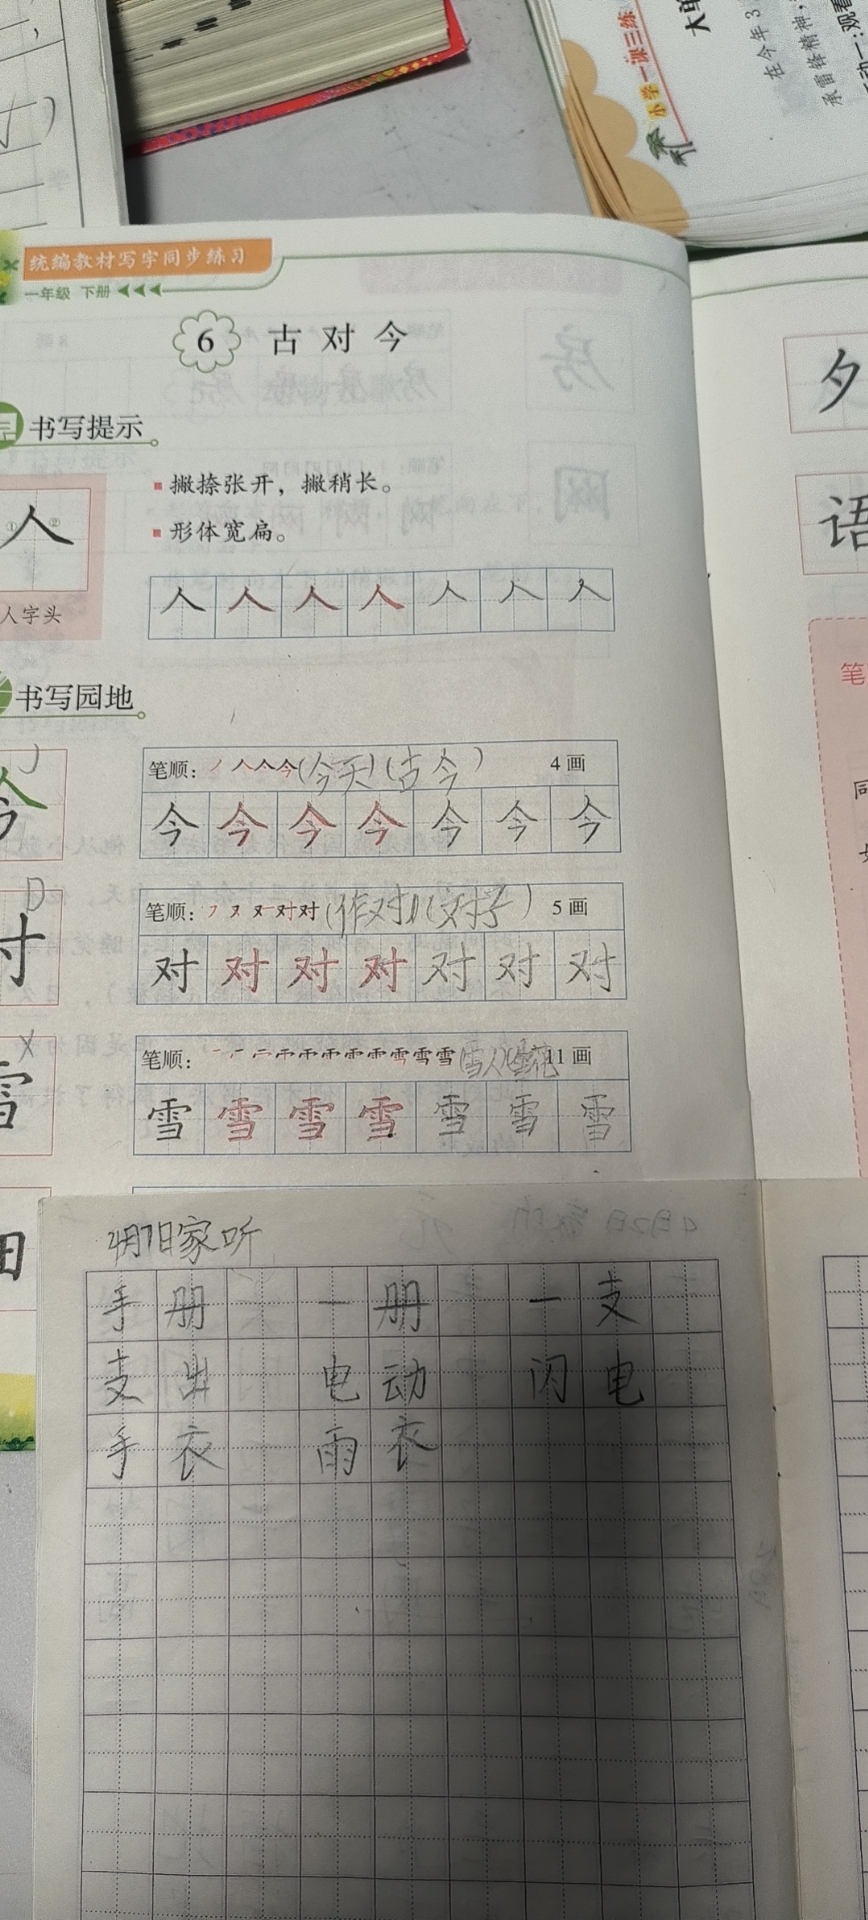 小学一课三练
在今年3
承雷锋精神，
统编教材写字同步练习
一年级 下册
6 古对今
书写提示
撇捺张开，撇稍长。
形体宽扁。
人 ① ②
人字头
人 人 人 人 人 人 人
书写园地
J
今
笔顺： (今天)(古今) 4画
今 今 今 今 今 今 今
D
对
笔顺： (作对)(对学) 5画
对 对 对 对 对 对 对
X
雪
笔顺： (雪人)(雪花 11画
雪 雪 雪 雪 雪 雪 雪
夕
语
笔
4月7日家听
手册 一册 一支
支出 电动 闪电
手衣 雨衣